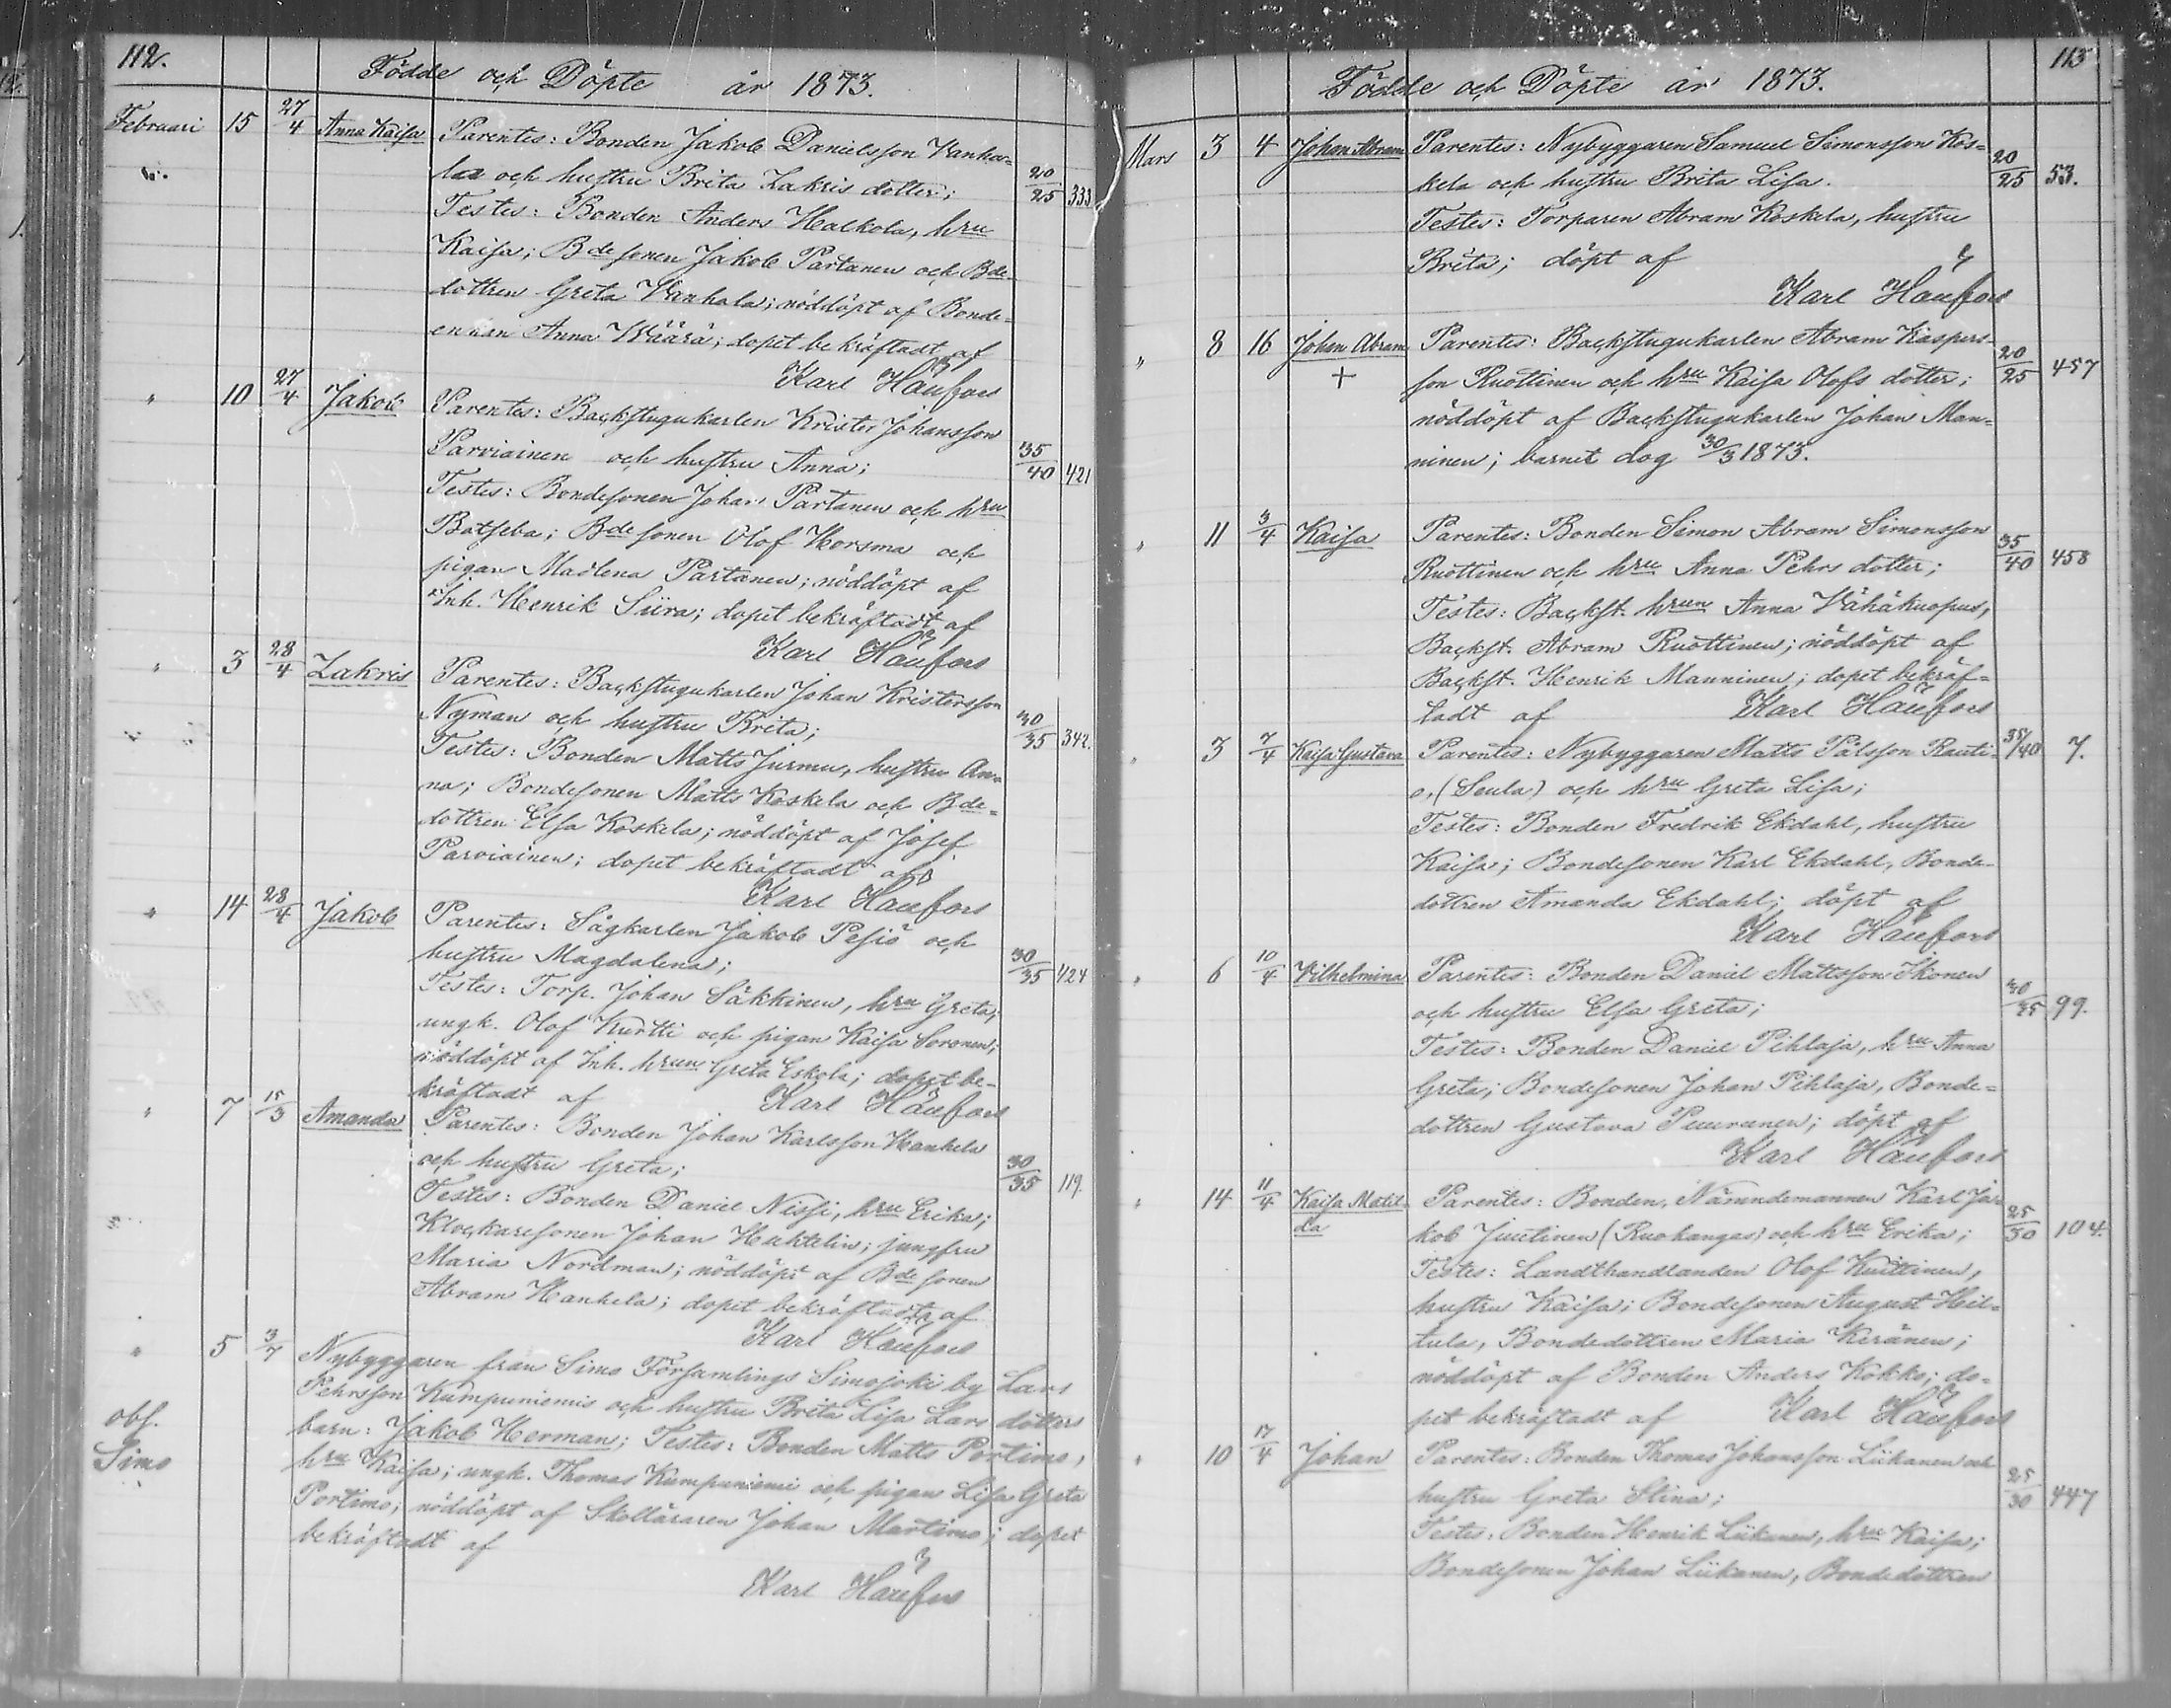 112.
Födde och Döpte år 1873.
Februari 15 27/4 Anna Kaisa Parentes: Bonden Jakob Danielsson Vanha-
la och hustru Brita Zakris dotter; 20/25 333
Testes: Bonden Anders Halkola, hru
Kaisa; Bde sonen Jakob Partanen och Bde-
dottren Greta Vanhala; nöddöpt af Bonde-
enkan Anna Määrä; dopet bekräftadt af
Karl Haufors
" 10 27/4 Jakob Parentes: Backstugukarlen Krister Johansson
Parviainen och hustru Anna; 35/40 421
Testes: Bondesonen Johan Partanen och hru
Batseba; Bde sonen Olof Horsma och
pigan Madlena Partanen; nöddöpt af
Inh. Henrik Siira; dopet bekräftadt af
Karl Haufors
" 3 28/4 Zakris Parentes: Backstugukarlen Johan Kristersson
Nyman och hustru Brita; 30/35 342.
Testes: Bonden Matts Jurmu, hustru An-
na; Bondesonen Matts Koskela och Bde-
dottren Elsa Koskela; nöddöpt af Josef
Parviainen; dopet bekräftadt af
Karl Haufors
" 14 28/4 Jakob Parentes: Sågkarlen Jakob Pesiö och
hustru Magdalena; 30/35 424
Testes: Torp. Johan Säkkinen, hru Greta,
ungk. Olof Kurtti och pigan Kaisa Soronen;
nöddöpt af Inh. hrun Greta Eskola; dopet be-
kräftadt af Karl Haufors
" 7 15/3 Amanda Parentes: Bonden Johan Karlsson Hanhela
och hustru Greta; 30/35 119.
Testes: Bonden Daniel Nissi, hru Erika;
Klockaresonen Johan Huhtelin; jungfru
Maria Nordman; nöddöpt af Bde sonen
Abram Hanhela; dopet bekräftadt af
Karl Haufors
" 5 3/7 Nybyggaren från Simo Församlings Simojoki by Lars
Pehrsson Kumpuniemis och hustru Brita Lisa Lars dotters
obs. barn: Jakob Herman; Testes: Bonden Matts Portimo,
Simo hru Kaisa; ungk. Thomas Kumpuniemi och pigan Lisa Greta
Portimo; nöddöpt af Skolläraren Johan Martimo; dopet
bekräftadt af
Karl Haufors
113
Födde och Döpte år 1873.
Mars 3 4 Johan Abram Parentes: Nybyggaren Samuel Simonsson Kos-
kela och hustru Brita Lisa. 20/25 53.
Testes: Torparen Abram Koskela, hustru
Brita; döpt af
Karl Haufors
" 8 16 Johan Abram Parentes: Backstugukarlen Abram Kaspers-
+ son Ruottinen och hru Kaisa Olofs dotter; 20/25 457
nöddöpt af Backstugukarlen Johan Man-
ninen; barnet dog 30/3 1873.
" 11 3/4 Kaisa Parentes: Bonden Simon Abram Simonsson
Ruottinen och hru Anna Pehrs dotter; 35/40 458
Testes: Backst. hrun Anna Vähäkuopus,
Backst. Abram Ruottinen; nöddöpt af
Backst. Henrik Manninen; dopet bekräf-
tadt af Karl Haufors
" 3 7/4 Kaisa Gustava Parentes: Nybyggaren Matts Pålsson Rauti- 35/40 7.
o, (Seula) och hru Greta Lisa;
Testes: Bonden Fredrik Ekdahl, hustru
Kaisa; Bondesonen Karl Ekdahl, Bonde-
dottren Amanda Ekdahl; döpt af
Karl Haufors
" 6 10/4 Vilhelmina Parentes: Bonden Daniel Mattsson Ikonen
och hustru Elsa Greta; 30/35 99.
Testes: Bonden Daniel Pihlaja, hru Anna
Greta; Bondesonen Johan Pihlaja, Bonde-
dottren Gustava Puurunen; döpt af
Karl Haufors
" 14 11/4 Kaisa Matil- Parentes: Bonden, Nämndemannen Karl Ja-
da kob Juutinen (Ruokangas) och hru Erika; 25/30 104.
Testes: Landthandlanden Olof Kuittinen,
hustru Kaisa; Bondesonen August Heil-
tula, Bondedottren Maria Keränen;
nöddöpt af Bonden Anders Kokko; do-
pet bekräftadt af Karl Haufors
" 10 17/4 Johan Parentes: Bonden Thomas Johansson Liikanen och
hustru Greta Stina; 25/30 447
Testes: Bonden Henrik Liikanen, hru Kaisa;
Bondesonen Johan Liikanen, Bondedottren